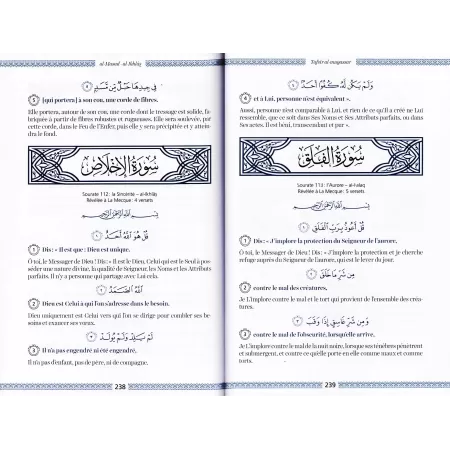 al-Masad - al-Ikhlâs
فِي جِيدِهَا حَبْلٌ مِّن مَّسَدٍ
5 [qui portera] à son cou, une corde de fibres.
Elle portera, autour de son cou, une corde dont le tressage est solide, fa-
briquée à partir de fibres robustes et rugueuses. Elle sera soulevée, par
cette corde, dans le Feu de l'Enfer, puis elle y sera précipitée et y attein-
dra le fond.
سُورَةُ الإِخْلَاصِ
Sourate 112: la Sincérité – al-Ikhlâs
Révélée à La Mecque: 4 versets
بِسْمِ اللَّهِ الرَّحْمَٰنِ الرَّحِيمِ
قُلْ هُوَ اللَّهُ أَحَدٌ ١
1 Dis: « Il est que: Dieu est unique.
Ô toi, le Messager de Dieu! Dis: « Il est le Dieu, Celui qui est le Seul à pos-
séder une nature divine, la qualité de Seigneur, les Noms et les Attributs
parfaits. Il n'y a personne qui partage avec Lui cela.
اللَّهُ الصَّمَدُ ٢
2 Dieu est Celui à qui l'on s'adresse dans le besoin.
Dieu uniquement est Celui vers qui l'on se dirige pour combler ses be-
soins et exaucer ses vœux.
لَمْ يَلِدْ وَلَمْ يُولَدْ ٣
3 Il n'a pas engendré ni été engendré.
Il n'a pas d'enfant, pas de père, ni de compagne.
238
Tafsîr al-muyassar
وَلَمْ يَكُن لَّهُ كُفُوًا أَحَدٌ
4 et à Lui, personne n'est équivalent ».
Aussi, personne n'est comparable à Lui, et rien de ce qu'Il a créé ne Lui
ressemble, que ce soit dans Ses Noms et Ses Attributs parfaits, ou dans
Ses actes. Il est béni, transcendant et par ».
سُورَةُ الفَلَقِ
Sourate 113: l'Aurore – al-Falaq
Révélée à La Mecque: 5 versets
بِسْمِ اللَّهِ الرَّحْمَٰنِ الرَّحِيمِ
قُلْ أَعُوذُ بِرَبِّ الْفَلَقِ ١
1 Dis: « J'implore la protection du Seigneur de l'aurore.
Ô toi, le Messager de Dieu! Dis: « J'implore la protection et je cherche
refuge auprès du Seigneur de l'aurore, qui est le lever du jour.
مِن شَرِّ مَا خَلَقَ ٢
2 contre le mal des créatures,
Je L'implore contre le mal et le tort qui provient de l'ensemble des créa-
tures.
وَمِن شَرِّ غَاسِقٍ إِذَا وَقَبَ ٣
3 contre le mal de l'obscurité, lorsqu'elle arrive.
Je L'implore contre le mal de la nuit noire, lorsque ses ténèbres pénètrent
et submergent, et contre ce qu'elle porte en elle comme maux et comme
torts.
239